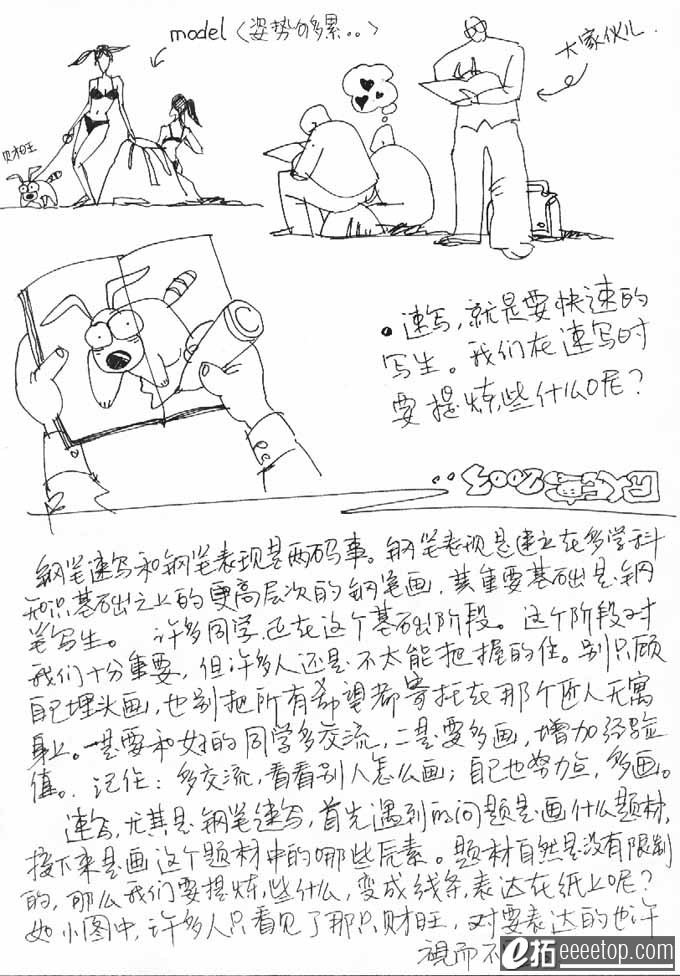 model〈姿势够多累..〉
大家伙儿
财旺
•速写,就是要快速的
写生。我们在速写时
要提炼些什么呢?
2003
钢笔速写和钢笔表现是两码事。钢笔表现是建立在多学科
知识基础之上的更高层次的钢笔画,其重要基础是钢
笔写生。 许多同学还在这个基础阶段。这个阶段对
我们十分重要,但许多人还是不太能把握的住。别只顾
自己埋头画,也别把所有希望都寄托在那个匠人无寓
身上。一是要和好的同学多交流,二是要多画,增加经验
值。记住:多交流,看看别人怎么画;自己也努力点,多画。
速写,尤其是钢笔速写,首先遇到的问题是画什么题材,
接下来是画这个题材中的哪些元素。题材自然是没有限制
的,那么我们要提炼些什么,变成线条,表达在纸上呢?
如小图中,许多人只看见了那只财旺,对要表达的也许
视而不
e拓 eeeetop.com